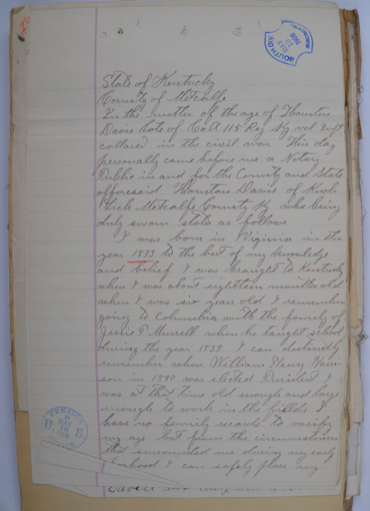 State of Kentucky
County of Metcalfe
In the matter of the age of Thornton
Davis late of Co A 115 Reg Ky vol Inft
collared in the civil war. This day
personally came before me a Notary
Public in and for the County and State
afforesaid Thornton Davis of Knob
Lick Metcalfe County Ky who being
duly sworn state as follows
I was born in Virginia in the
year 1833 to the best of my knowledge
and belief I was braught to Kentucky
when I was about eighteen months old
when I was six years old I remember
going to Columbia with the family of
T Murrell when he taught school
during the year 1839 I can distinctly
remember when William Henry Harri-
son in 1840 was elected President I
was at that time old enough and large
enough to work in the fields I
have no family records to
my age but from the circumstances
that surrounded me during my early
I can safely place my
SOUTH DIV.
MAY
1908
U S
MAY